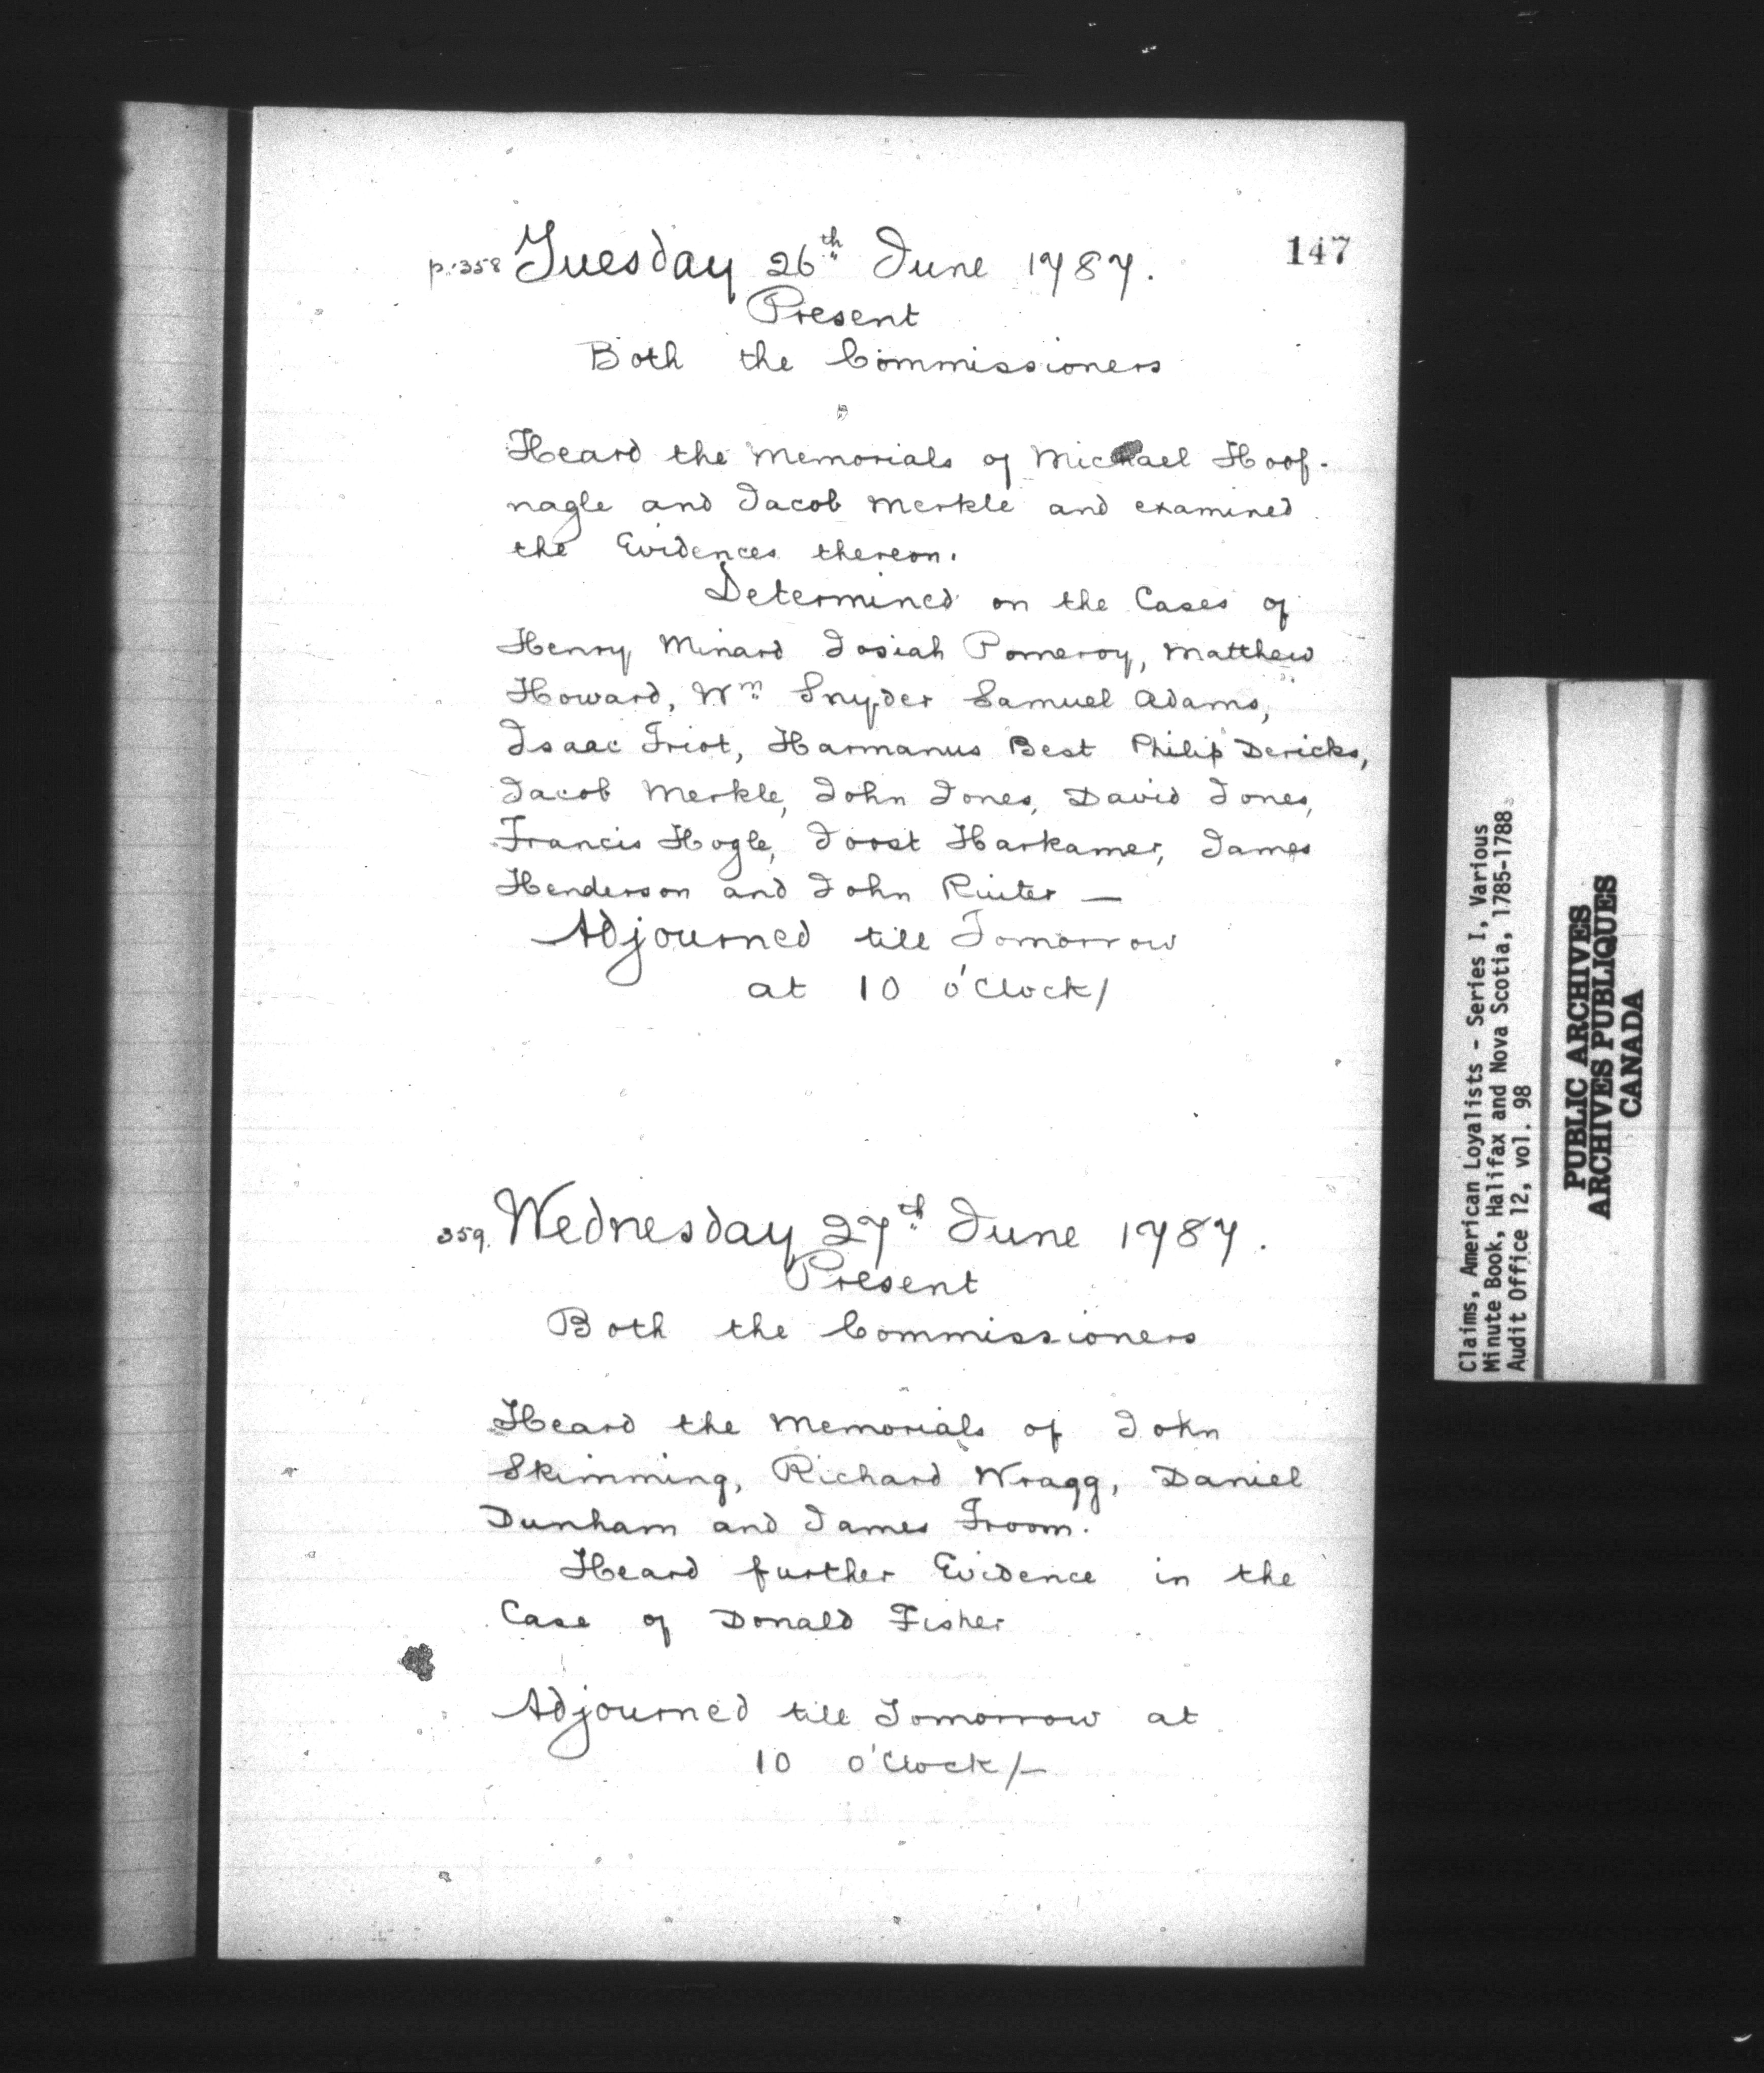 147
p. 358 Tuesday 26th June 1787.
Present
Both the Commissioners
Heard the Memorials of Michael Hoof-
nagle and Jacob Merkle and examined
the Evidences thereon.
Determined on the Cases of
Henry Minard Josiah Pomeroy, Matthew
Howard, Wm Snyder Samuel Adams,
Isaac Friot, Harmanus Best Philip Dericks,
Jacob Merkle, John Jones, David Jones,
Francis Hogle, Joost Harkamer, James
Henderson and John Ruiter —
Adjourned till Tomorrow
at 10 o'Clock/
359. Wednesday 27th June 1787.
Present
Both the Commissioners
Heard the Memorials of John
Skimming, Richard Wragg, Daniel
Dunham and James Froom.
Heard further Evidence in the
Case of Donald Fisher
Adjourned till Tomorrow at
10 o'Clock/—
Claims, American Loyalists - Series I, Various
Minute Book, Halifax and Nova Scotia, 1785-1788
Audit Office 12, vol. 98
PUBLIC ARCHIVES
ARCHIVES PUBLIQUES
CANADA